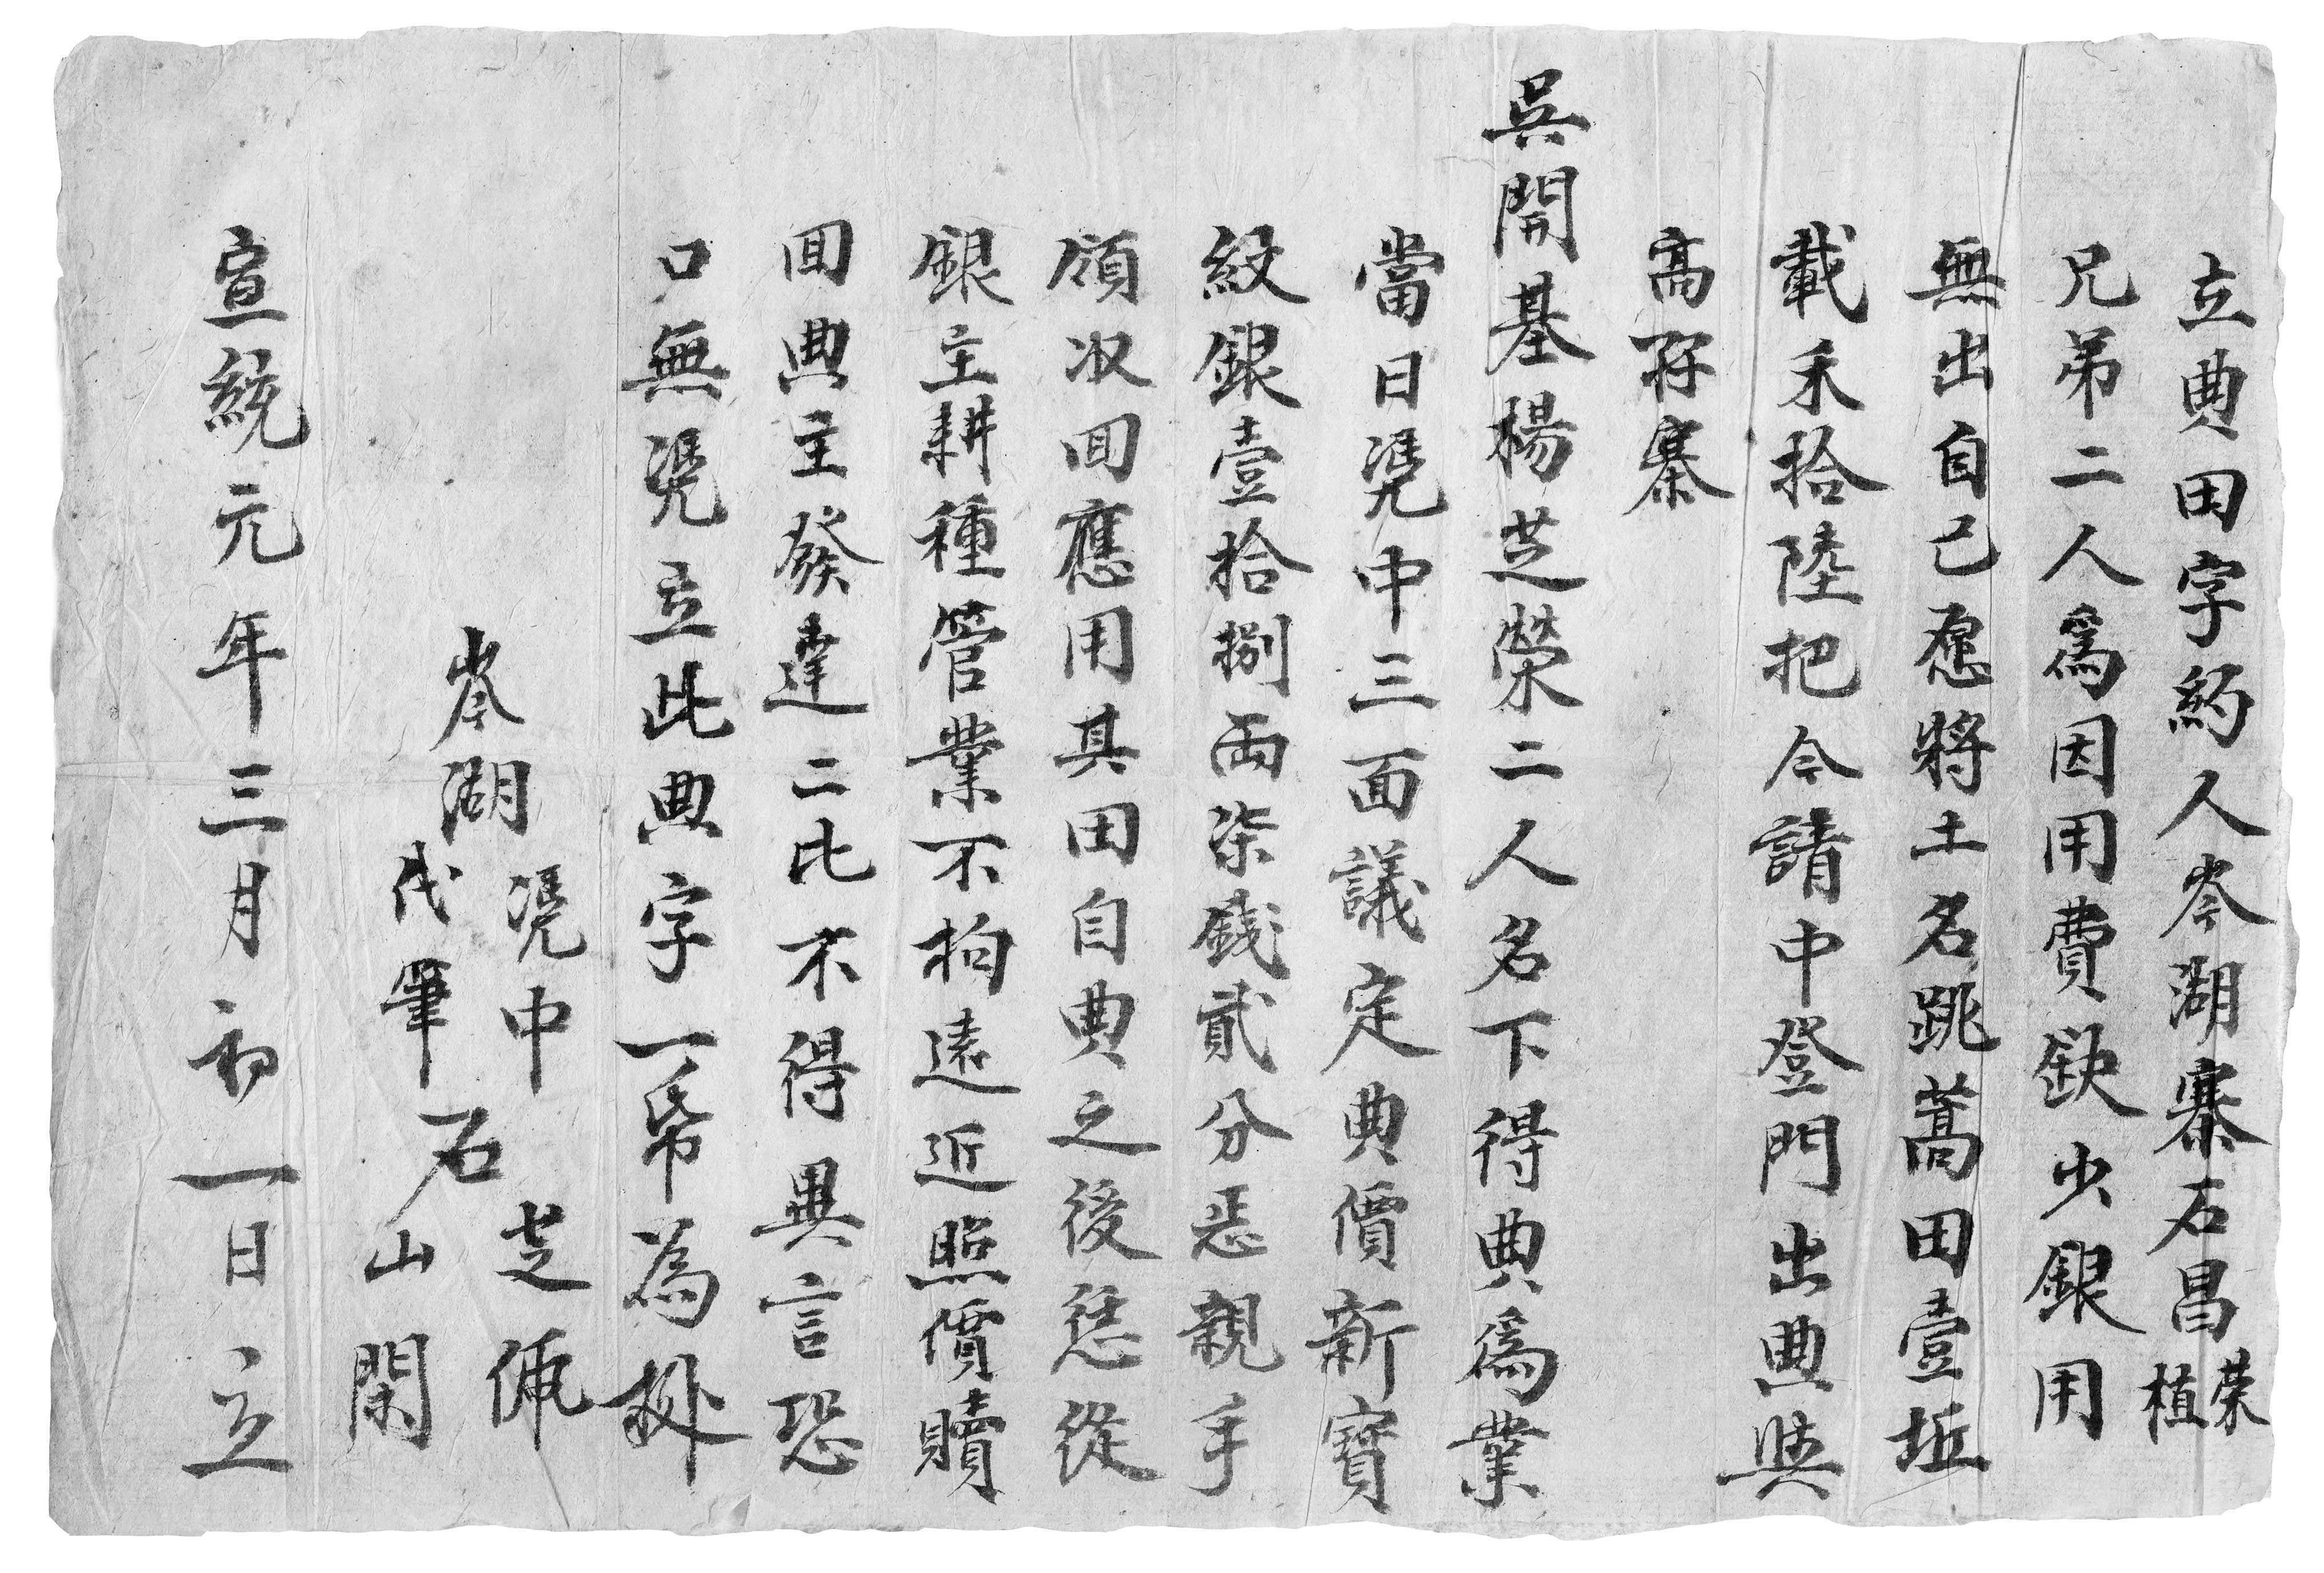 立典田字約人岑湖寨石昌榮植
兄弟二人為因用費缺少銀用
無出自己愿將土名跳蒿田壹坵
載禾拾陸把今請中登門出典與
高孖寨
吳開基楊芝榮二人名下得典為業
當日凴中三面議定典價新寶
紋銀壹拾捌両柒錢貳分恁親手
領收回應用其田自典之後恁從
銀主耕種管業不拘遠近照價贖
回典主發達二比不得異言恐
口無凴立此典字一帋為據
凴中 芝佩
岑湖 石
代筆 山閑
宣統元年三月初一日立